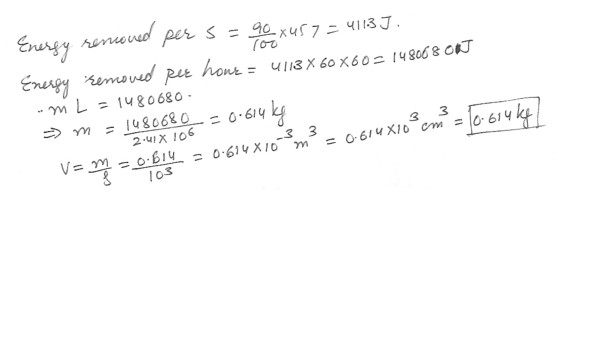 Energy removed per s = 90/100 × 457 = 4113 J.
Energy removed per hour = 4113 × 60 × 60 = 1480680 J
∴ m L = 1480680.
⇒ m = 1480680/2.41 × 10⁶ = 0.614 kg
V = m/ρ = 0.614/10³ = 0.614 × 10⁻³ m³ = 0.614 × 10³ cm³ = 0.614 kg